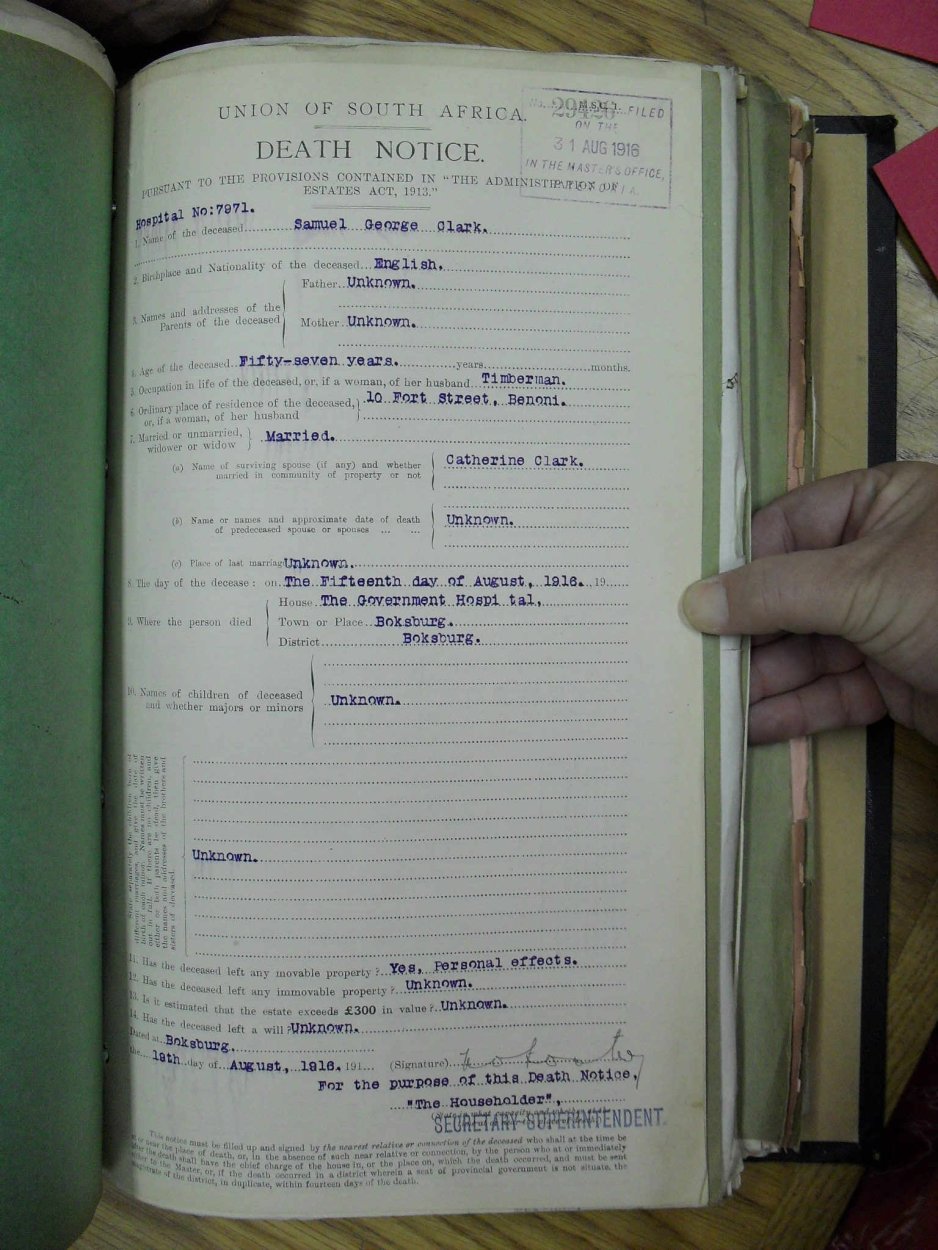 UNION OF SOUTH AFRICA.
M.S.C. 1.
No. 29426 FILED
ON THE
31 AUG 1916
IN THE MASTER'S OFFICE,
DEATH NOTICE.
PURSUANT TO THE PROVISIONS CONTAINED IN "THE ADMINISTRATION OF
ESTATES ACT, 1913."
Hospital No:7971.
1. Name of the deceased Samuel George Clark.
2. Birthplace and Nationality of the deceased English.
3. Names and addresses of the Parents of the deceased
Father Unknown.
Mother Unknown.
4. Age of the deceased Fifty-seven years. years months.
5. Occupation in life of the deceased, or, if a woman, of her husband Timberman.
6. Ordinary place of residence of the deceased, 10 Fort Street, Benoni.
or, if a woman, of her husband
7. Married or unmarried, Married.
widower or widow
(a) Name of surviving spouse (if any) and whether Catherine Clark.
married in community of property or not
(b) Name or names and approximate date of death Unknown.
of predeceased spouse or spouses ... ...
(c) Place of last marriage Unknown.
8. The day of the decease: on The Fifteenth day of August, 1916. 19
House The Government Hospi tal,
9. Where the person died Town or Place Boksburg.
District Boksburg.
10. Names of children of deceased Unknown.
and whether majors or minors
State separately the children born of
different marriages, and give the date of
birth of each minor. Names must be written
out in full. If there are no children, and
either or both parents be dead, then give
the names and addresses of the brothers and
sisters of deceased.
Unknown.
11. Has the deceased left any movable property? Yes, Personal effects.
12. Has the deceased left any immovable property? Unknown.
13. Is it estimated that the estate exceeds £300 in value? Unknown.
14. Has the deceased left a will? Unknown.
Dated at Boksburg.
the 19th day of August, 1916. 191 (Signature)
For the purpose of this Death Notice,
"The Householder",
SECRETARY-SUPERINTENDENT.
This notice must be filled up and signed by the nearest relative or connection of the deceased who shall at the time be
at or near the place of death, or, in the absence of such near relative or connection, by the person who at or immediately
after the death shall have the chief charge of the house in, or the place on, which the death occurred, and must be sent
either to the Master, or, if the death occurred in a district wherein a seat of provincial government is not situate, the
magistrate of the district, in duplicate, within fourteen days of the death.